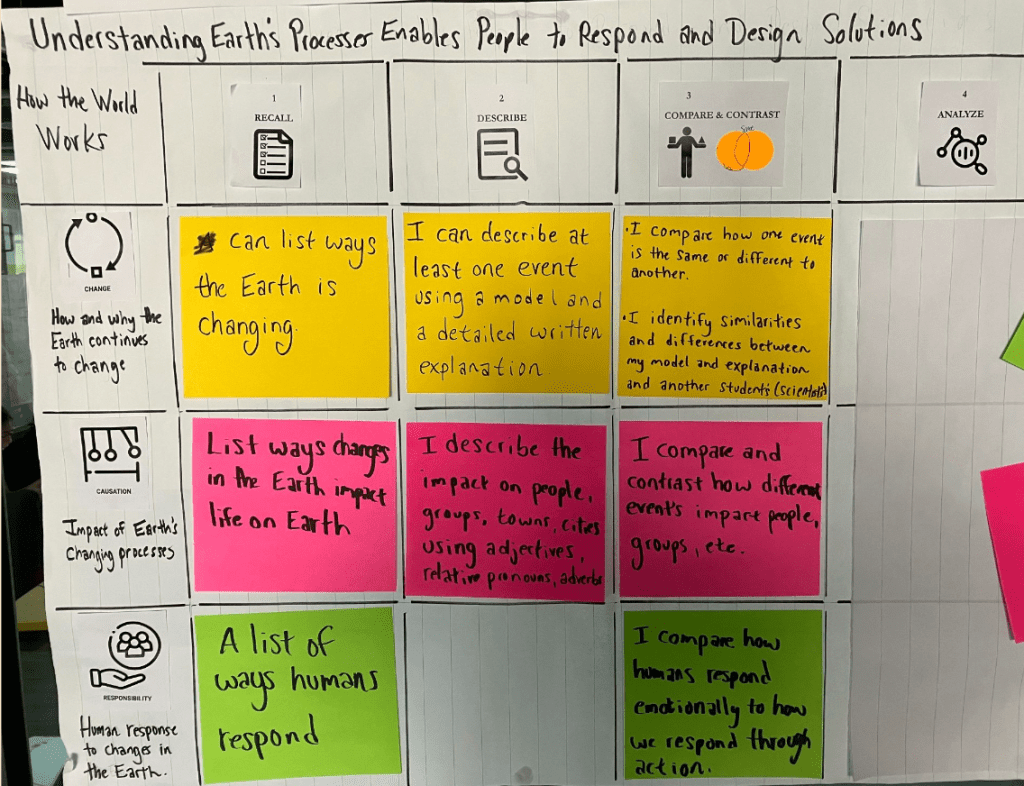 Understanding Earth's Processer Enables People to Respond and Design Solutions
How the World
Works
1
RECALL
2
DESCRIBE
3
COMPARE & CONTRAST
4
ANALYZE
CHANGE
How and why the
Earth continues
to change
can list ways
the Earth is
changing.
I can describe at
least one event
using a model and
a detailed written
explanation
• I compare how one event
is the same or different to
another.
• I identify similarities
and differences between
my model and explanation
and another students (scientists)
CAUSATION
Impact of Earth's
Changing processes
List ways changes
in the Earth impact
life on Earth
I describe the
impact on people,
groups, towns, cites
using adjectives,
relative pronouns, adverbs
I compare and
contrast how different
event's impact people,
groups, etc.
RESPONSIBILITY
Human response
to changes in
the Earth.
A list of
ways humans
respond
I compare how
humans respond
emotionally to how
we respond through
action.